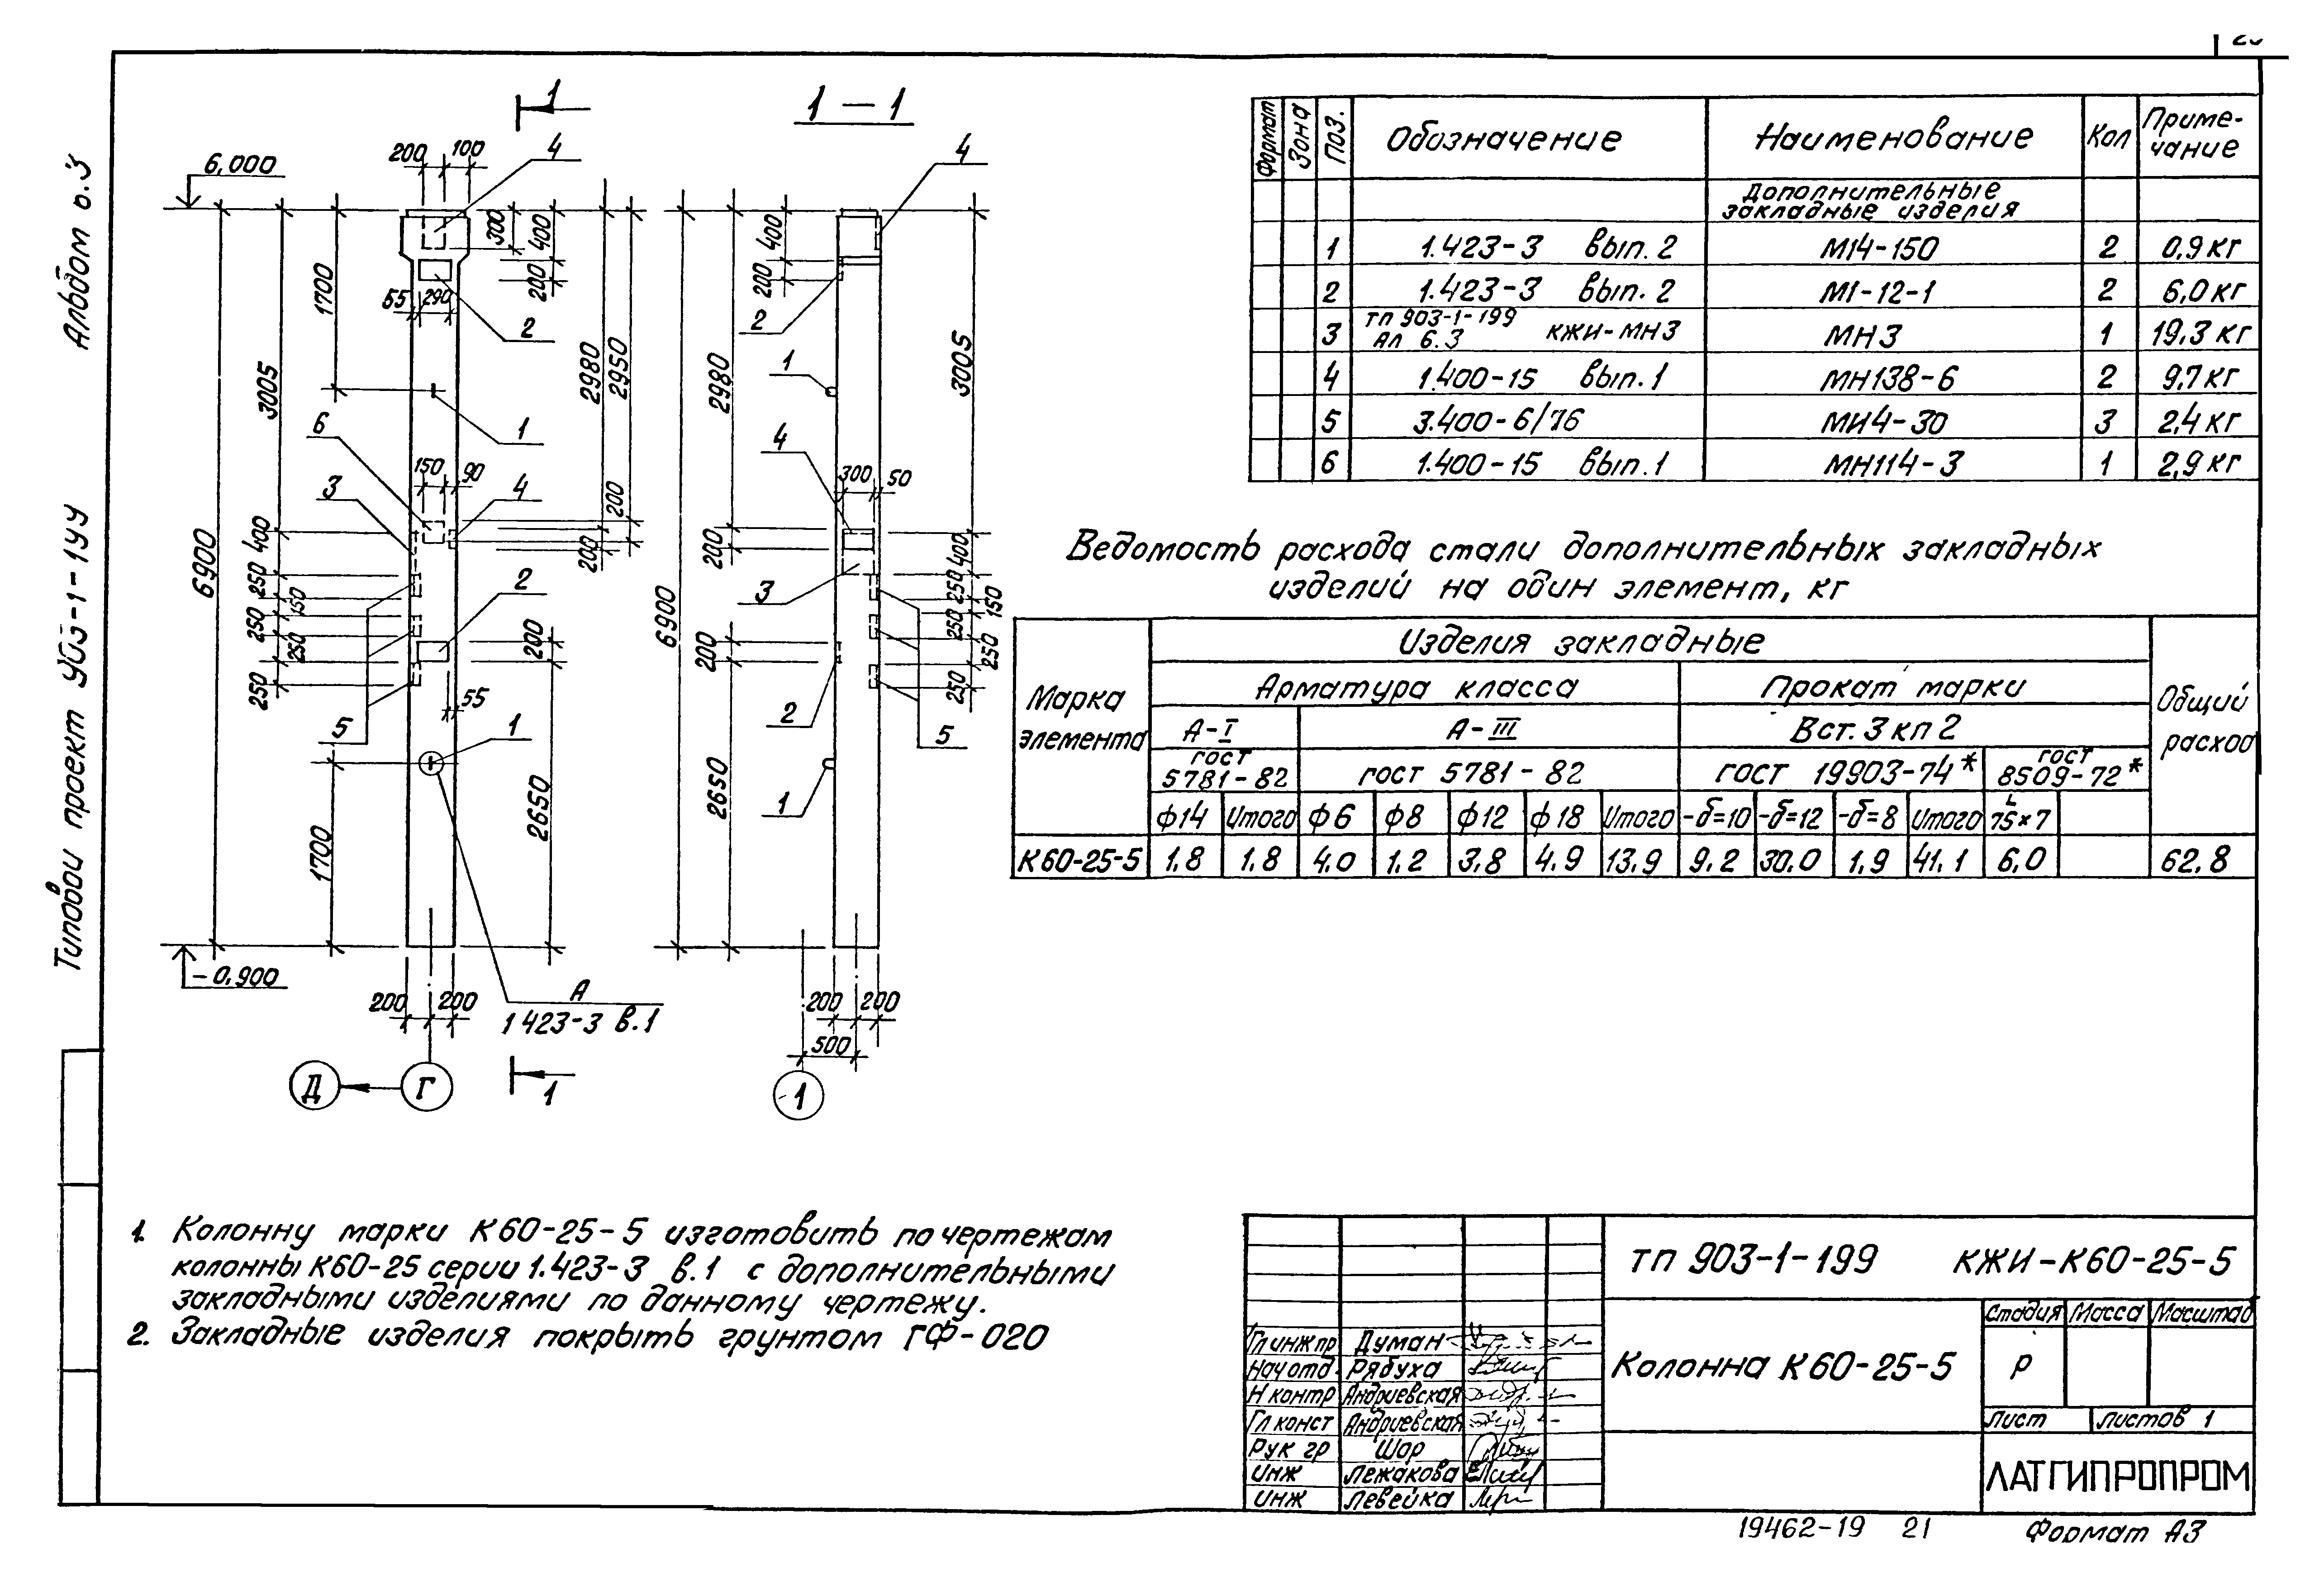 Альбом 6.3
Типовой проект
1
1 – 1
6,000
200 100 4
300
400
200
1700
55 290
2
3005
2980
2950
1
6
150 90
3
4
400
200
200
250 150
250
250
250
2
200
55
5
1
6900
1700
2650
-0,900
200 200
А
1 423-3 в.1
Д Г
1
4
400
200
2
2980
3005
1
4
300 50
200
400
3
250 150
250
250
250
200
2
5
1
6900
2650
200 200
500
1
Формат Зона Поз. Обозначение Наименование Кол Приме-чание
Дополнительные
закладные изделия
1 1.423-3 вып. 2 М14-150 2 0,9 кг
2 1.423-3 вып. 2 М1-12-1 2 6,0 кг
3 ТП 903-1-199 Ал 6.3 КЖИ-МН3 МН3 1 19,3 кг
4 1.400-15 вып.1 МН138-6 2 9,7 кг
5 3.400-6/76 МИ4-30 3 2,4 кг
6 1.400-15 вып.1 МН114-3 1 2,9 кг
Ведомость расхода стали дополнительных закладных
изделий на один элемент, кг
Марка элемента
Изделия закладные
Общий расход
Арматура класса Прокат марки
А-I А-III Вст.3 кп 2
ГОСТ 5781-82 ГОСТ 5781-82 ГОСТ 19903-74* ГОСТ 8509-72*
ф14 Итого ф6 ф8 ф12 ф18 Итого -δ=10 -δ=12 -δ=8 Итого L 75×7
К60-25-5 1.8 1.8 4.0 1.2 3.8 4.9 13.9 9.2 30.0 1.9 41.1 6.0 62.8
1. Колонну марки К60-25-5 изготовить по чертежам
колонны К60-25 серии 1.423-3 в.1 с дополнительными
закладными изделиями по данному чертежу.
2. Закладные изделия покрыть грунтом ГФ-020
ТП 903-1-199 КЖИ-К60-25-5
Стадия Масса Масштаб
Гл инж пр Думан
Нач отд. Рябуха
Колонна К60-25-5
Р
Н контр Андриевская
Гл конст Андриевская
Лист Листов 1
Рук гр Шор
Инж Лежакова
Инж Левейка
ЛАТГИПРОПРОМ
19462-19 21
Формат А3